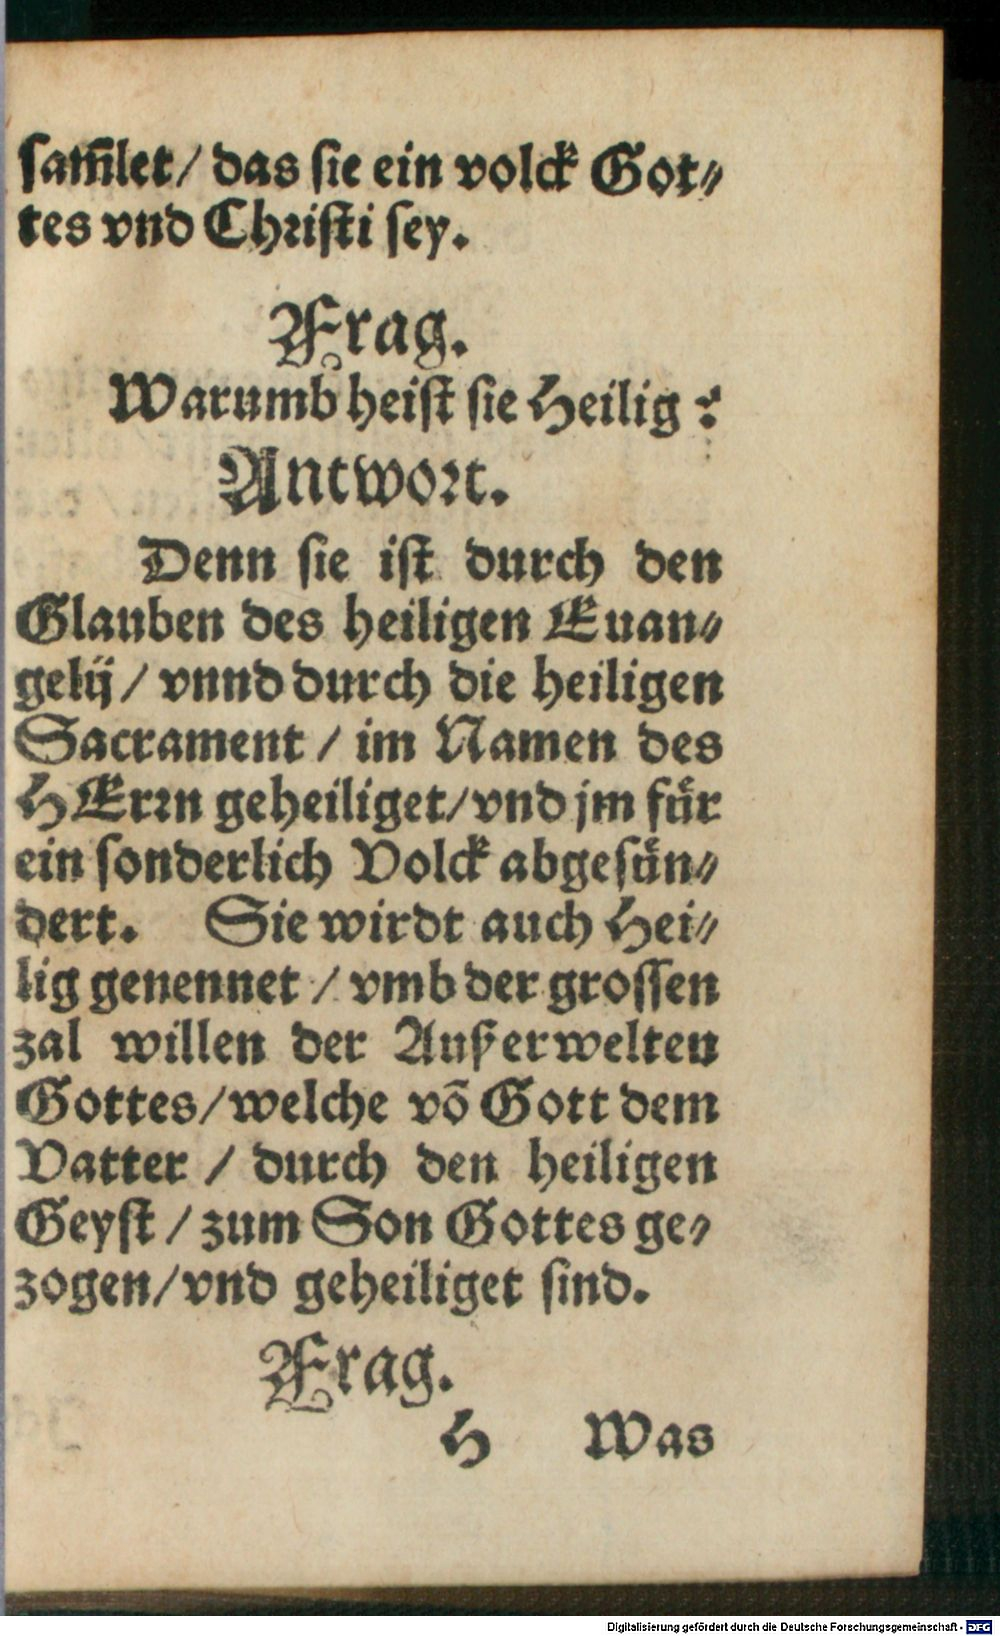 sam̃let / das sie ein volck Got⸗
tes vnd Christi sey.
Frag.
Warumb heist sie Heilig?
Antwort.
Denn sie ist durch den
Glauben des heiligen Euan⸗
gelij / vnnd durch die heiligen
Sacrament / im Namen des
HErrn geheiliget / vnd jm für
ein sonderlich Volck abgesün⸗
dert. Sie wirdt auch Hei⸗
lig genennet / vmb der grossen
zal willen der Außerwelten
Gottes / welche võ Gott dem
Vatter / durch den heiligen
Geyst / zum Son Gottes ge⸗
zogen / vnd geheiliget sind.
Frag.
H Was
Digitalisierung gefördert durch die Deutsche Forschungsgemeinschaft - DFG